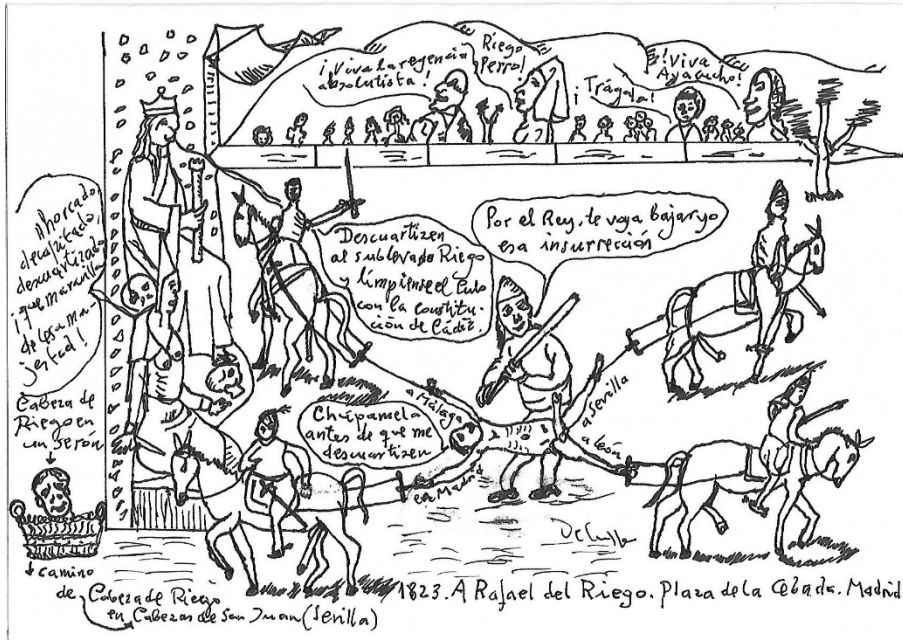 ¡Viva la regencia
absolutista!
Riego
perro!
¡Trágala!
¡Viva
Ayacucho!
Ahorcado,
decapitado,
descuartizado
¡que maravilla
de lesa ma-
jestad!
Descuartizen
al sublevado Riego
y límpiense el culo
con la constitu-
ción de Cádiz.
Por el Rey, te voy a bajar yo
esa insurreción
Chúpamela
antes de que me
descuartizen
a Málaga
a Sevilla
a León
en Madrid
Cabeza de
Riego en
un serón
camino
de
Cabeza de Riego
en Cabezas de San Juan (Sevilla)
1823. A Rafael del Riego. Plaza de la Cebada. Madrid